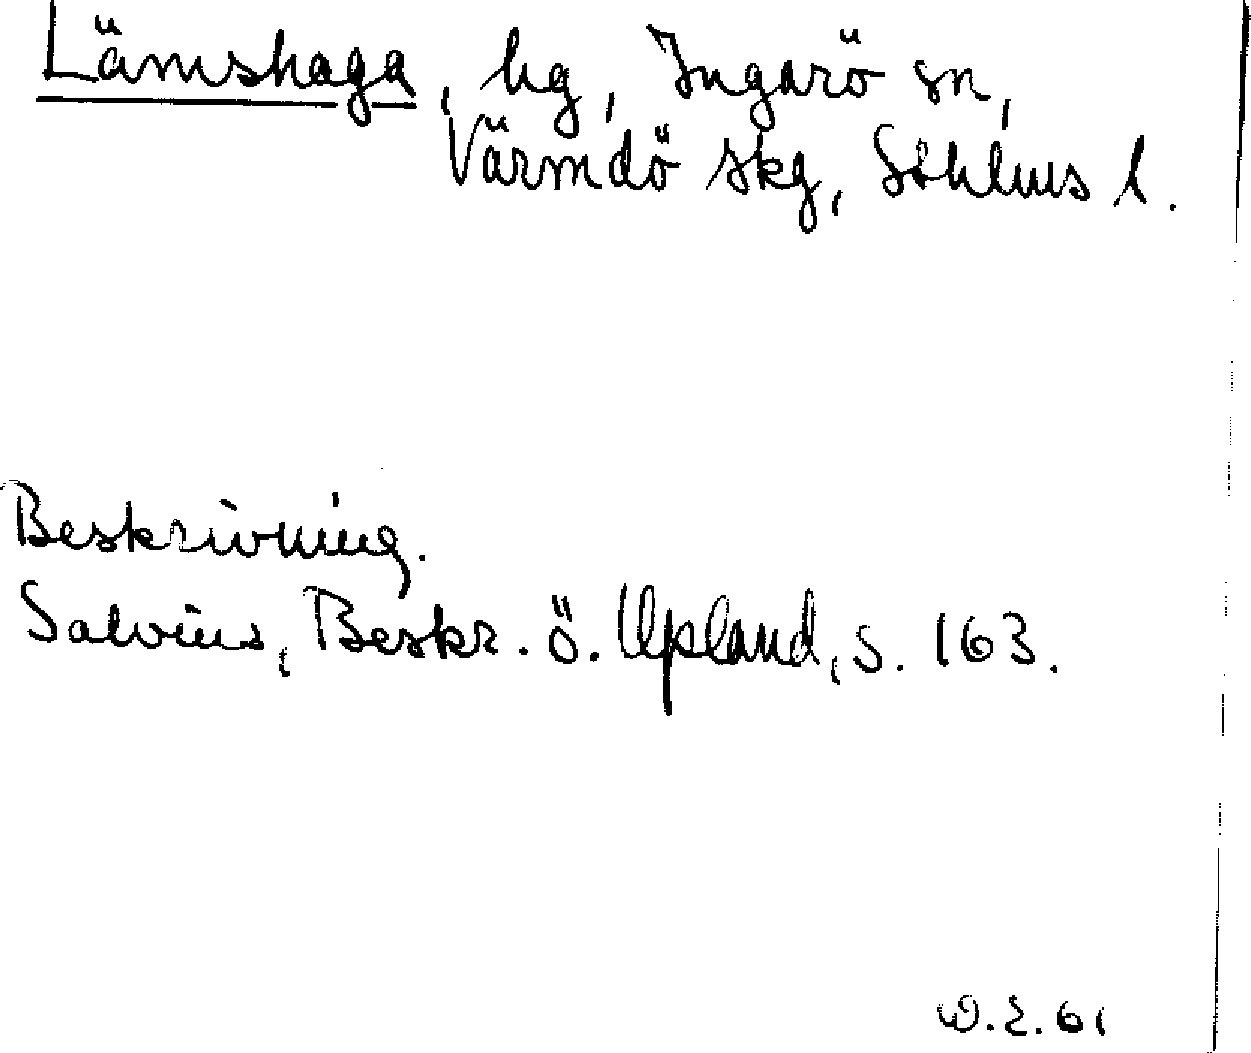 Lämshaga, hg, Ingarö sn,
Värmdö skg, Sthlms l.
Beskrivning.
Salvius, Beskr. ö. Upland, s. 163.
W.E. 61